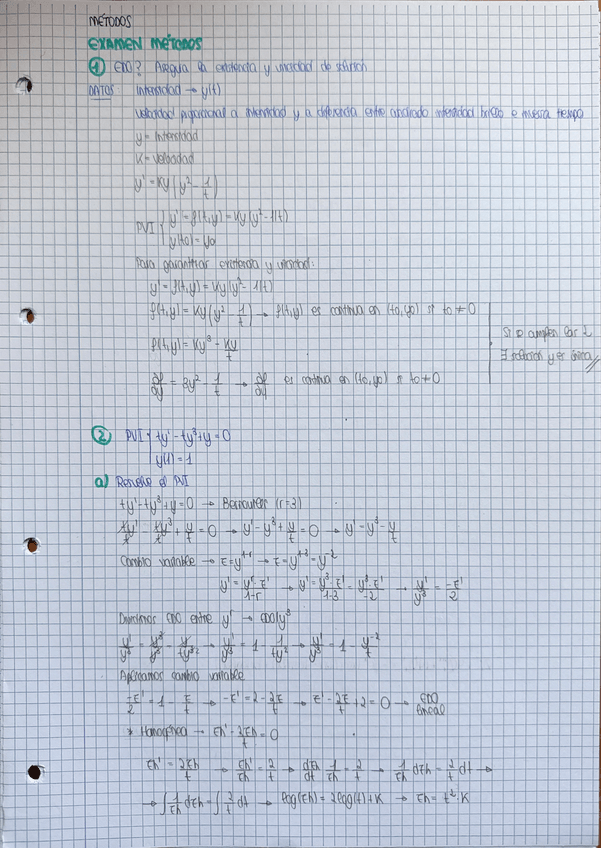 MÉTODOS
EXAMEN MÉTODOS
① EDO? Asegura la existencia y unicidad de solución
DATOS Intensidad → y(t)
Velocidad proporcional a intensidad y a diferencia entre cuadrado intensidad e inversa tiempo
y = Intensidad
K = Velocidad
y' = Ky(y² - 1/t)
PVI { y' = f(t,y) = Ky(y² - 1/t)
y(t0) = y0
Para garantizar existencia y unicidad:
y' = f(t,y) = Ky(y² - 1/t)
f(t,y) = Ky(y² - 1/t) → f(t,y) es continua en (t0,y0) si t0 ≠ 0
Si se cumplen las 2
∃ solución y es única
f(t,y) = Ky³ - Ky/t
∂f/∂y = 3y² - 1/t → ∂f/∂y es continua en (t0,y0) si t0 ≠ 0
② PVI { ty' - ty³ + y = 0
y(1) = 1
a) Resuelve el PVI
ty' - ty³ + y = 0 → Bernoulli (r=3)
ty'/t - ty³/t + y/t = 0 → y' - y³ + y/t = 0 → y' = y³ - y/t
Cambio variable → z = y^1-r → z = y^1-3 = y^-2
y' = y^r · z'/1-r → y' = y³ · z'/1-3 = y³ · z'/-2 → y'/y³ = -z'/2
Dividimos EDO entre y^r → EDO/y³
y'/y³ = y³/y³ - y/ty³ → y'/y³ = 1 - 1/ty² → y'/y³ = 1 - y^-2/t
Aplicamos cambio variable
-z'/2 = 1 - z/t → -z' = 2 - 2z/t → z' - 2z/t + 2 = 0 → EDO lineal
* Homogénea → zh' - 2zh/t = 0
zh' = 2zh/t → zh'/zh = 2/t → dzh/dt 1/zh = 2/t → 1/zh dzh = 2/t dt →
→ ∫ 1/zh dzh = ∫ 2/t dt → log(zh) = 2log(t) + K → zh = t² · K